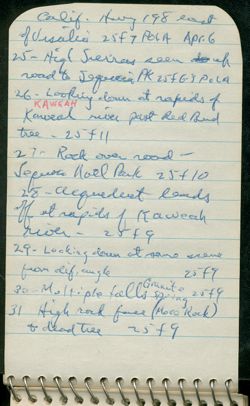 Calif. Hwy 198 east
of Visalia 25 f7 PoLA Apr. 6
25- High Sierras seen up
road to Sequoia PK 25 f6.3 PoLA
26- Looking down at rapids of
KAWEAH
Kaweah river past Red Bud
tree - 25 f11
27- Rock over road -
Sequoia Natl Park 25 f10
28- Acqueduct leads
off at rapids of Kaweah
river - 25 f9
29- Looking down at same scene
from dif. angle 25 f9
Granite
30- Multiple falls Spring 25 f9
31 High rock face (Moro Rock)
& dead tree 25 f9